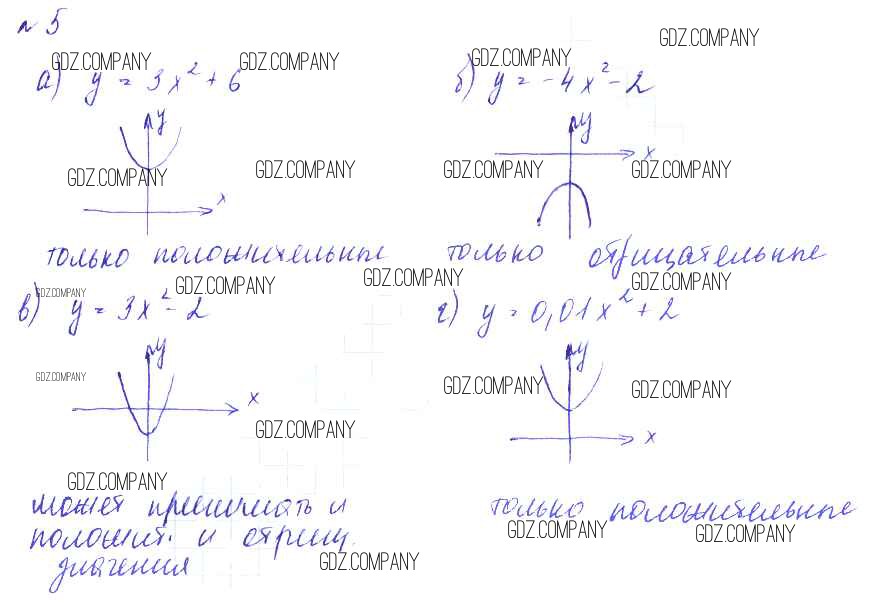 № 5
GDZ.COMPANY
GDZ.COMPANY GDZ.COMPANY
а) y = 3x² + 6
GDZ.COMPANY
б) y = -4x² - 2
y
x
GDZ.COMPANY GDZ.COMPANY
y
x
GDZ.COMPANY GDZ.COMPANY
только положительные
только отрицательные
GDZ.COMPANY GDZ.COMPANY GDZ.COMPANY GDZ.COMPANY
в) y = 3x² - 2
г) y = 0,01x² + 2
y
x
GDZ.COMPANY GDZ.COMPANY
y
x
GDZ.COMPANY GDZ.COMPANY
GDZ.COMPANY
может принимать и
положит. и отриц.
значения
только положительные
GDZ.COMPANY GDZ.COMPANY
GDZ.COMPANY